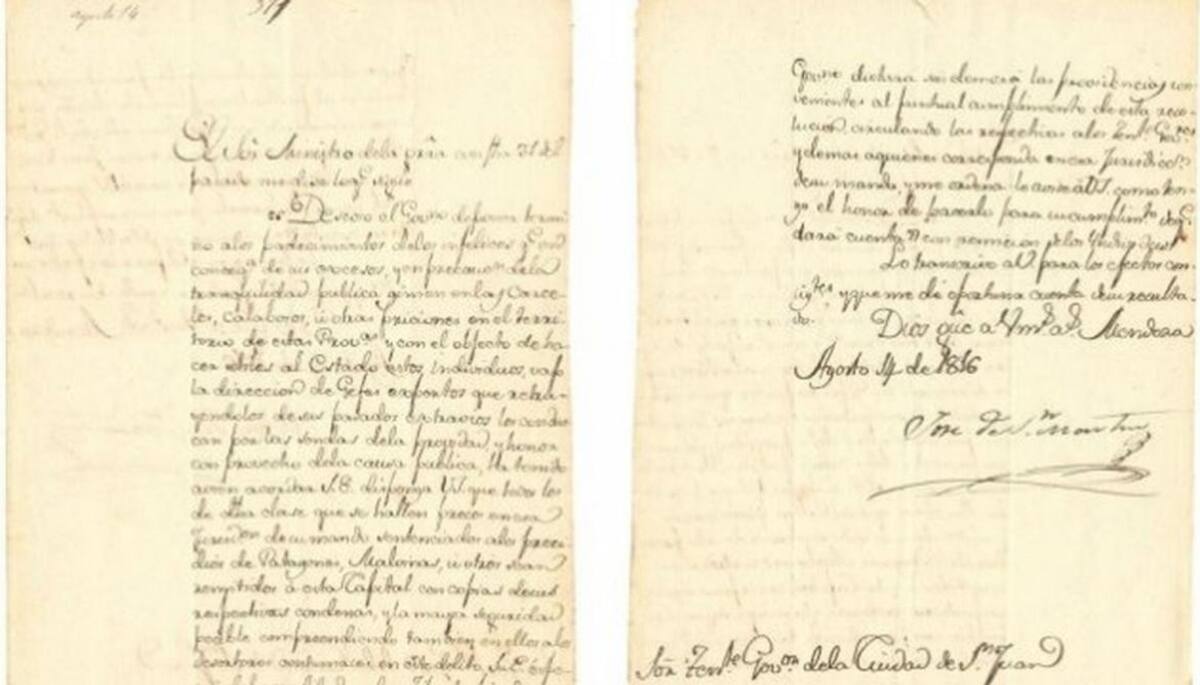 agosto 14
El Sor. Ministro dela grra con fha 31 del
pasado me dice lo qe. sigue
Deseoso el Govno. de poner termi-
no alos padecimientos delos infelices qe. en
conseqa. de sus excesos, y en precaucn. dela
tranquilidad publica gimen en las Carce-
les, calabozos, ú otras priciones en el terri-
torio de estas Provas. y con el objecto de ha-
cer utiles al Estado estos individuos, vajo
la direccion de Gefes expertos que retra-
yendolos de sus pasados extravios los condus-
can por las sendas dela propiedad, y honor
con provecho dela causa publica, Ha tenido
acien acordar S.E. disponga VS. que todos los
de dha clase que se hallen presos en esa
Jurisdon. de su mando sentenciados alos presi-
dios de Patagones, Malvinas, ú otros sean
remitidos á esta Capital con copias de sus
respectivas condenas, y la mayor seguridad
posible comprendiendo tambien en ellos alos
desertores contumaces en este delito. S.E. espe-
dictara sin demora las providencias con-
venientes al puntual cumplimiento de esta reso-
lucion, circulando las respectivas alos Tentes. Gres.
y demas aquienes corresponda en esa Jurisdicn.
de su mando, y me ordena lo avise á VS. como ten-
go el honor de hacerlo para su cumplimto. de qe.
dará cuenta con remision delos Individuos
Lo transcrivo á V. para los efectos con-
sigtes. y que me dé oportuna cuenta de su resulta-
do. Dios gue. a Vm. ms. as. Mendoza
Agosto 14 de 1816
Jose de Sn. Martin
Sor. Tente. Govor. dela Ciudad de Sn. Juan